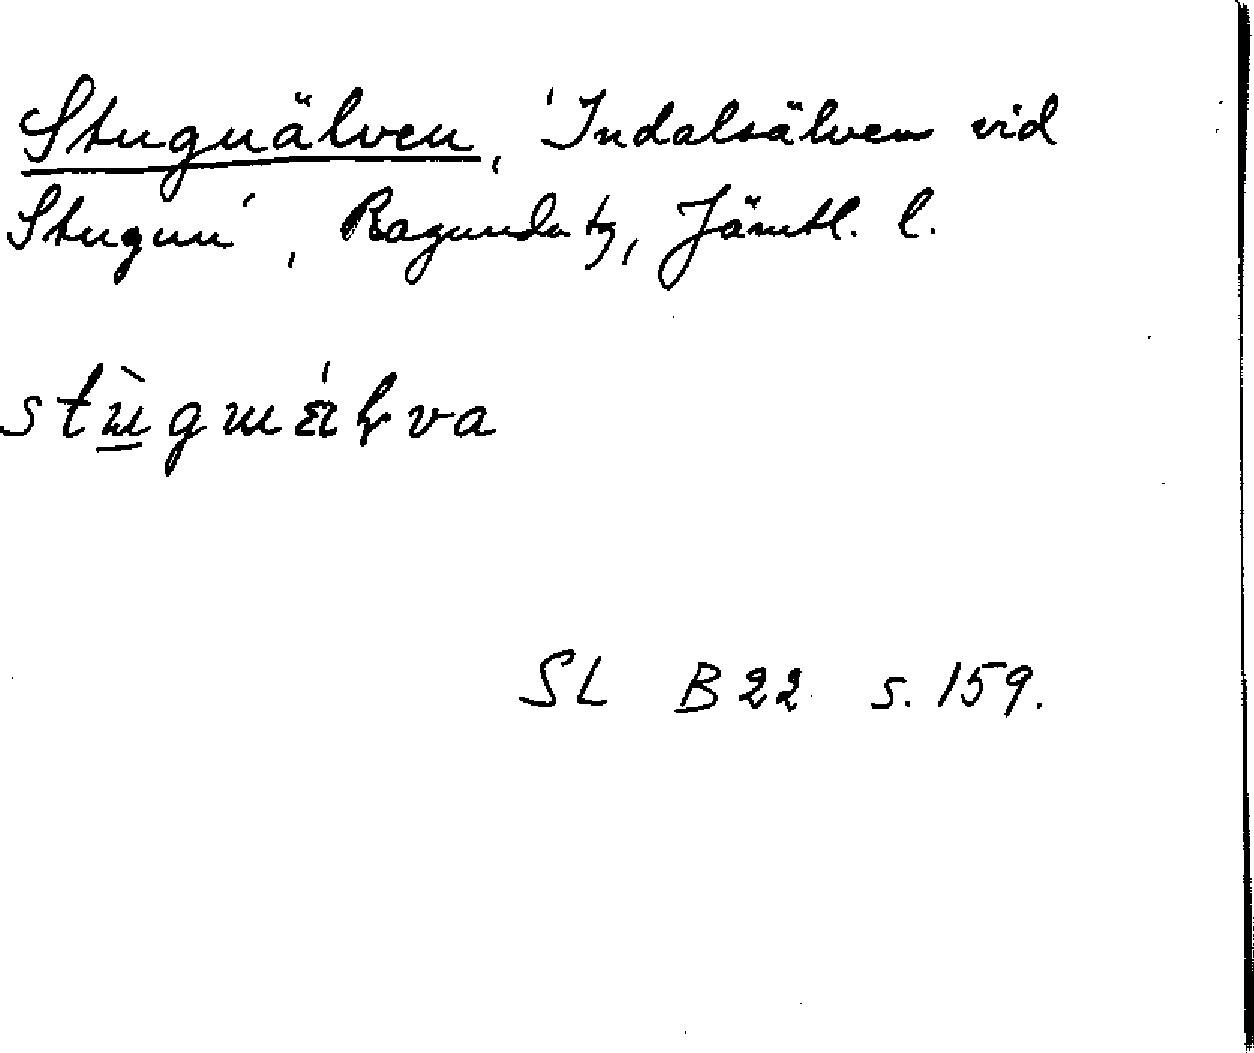 Stuguälven, 'Indalsälven vid
Stugun', Ragunda tg, Jämtl. l.
SL B22 s. 159.